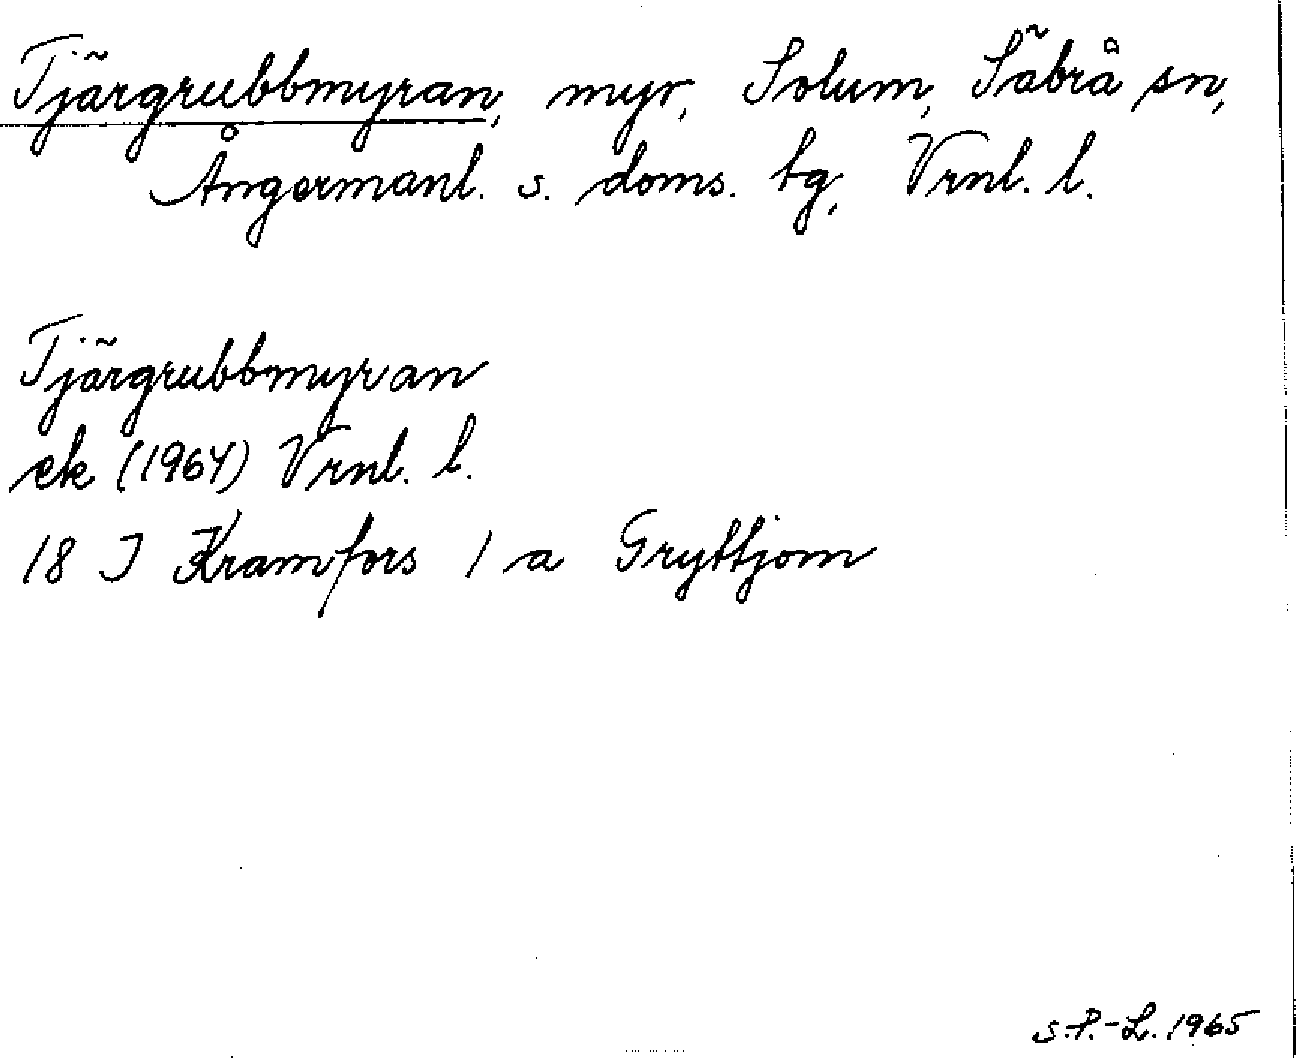 Tjärgrubbmyran, myr, Solum, Säbrå sn,
Ångermanl. s. doms. tg, Vrnl. l.
Tjärgrubbmyran
ek (1964) Vrnl. l.
18 I Kramfors 1 a Gryttjom
S.P.-L. 1965